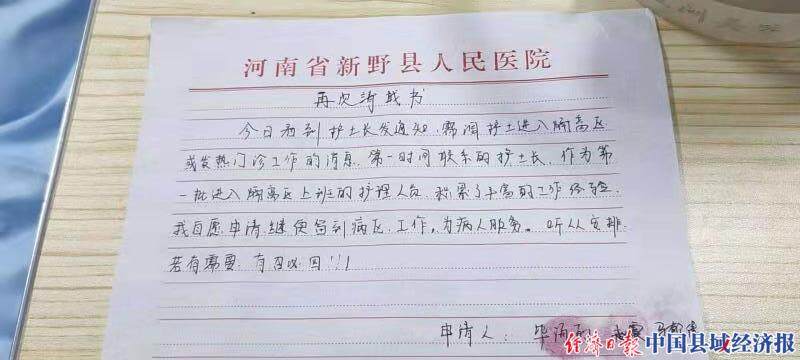 河南省新野县人民医院
再次请战书
今日看到护士长发通知,需调护士进入隔离区
或发热门诊工作的消息,第一时间联系的护士长,作为第
一批进入隔离区上班的护理人员,积累了丰富的工作经验,
我自愿申请继使留到病区工作,为病人服务。听从安排,
若有需要,有召必回!!!
申请人:毕
经济日报 中国县域经济报